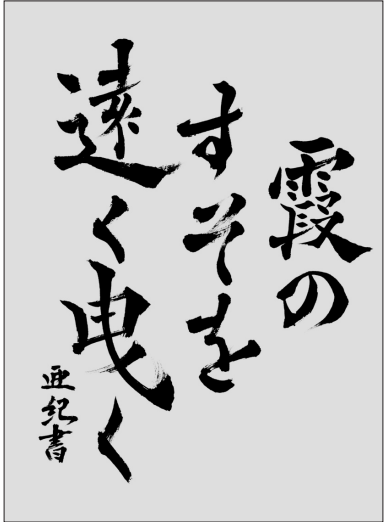 霞の
すそを
遠く曳く
亜紀書